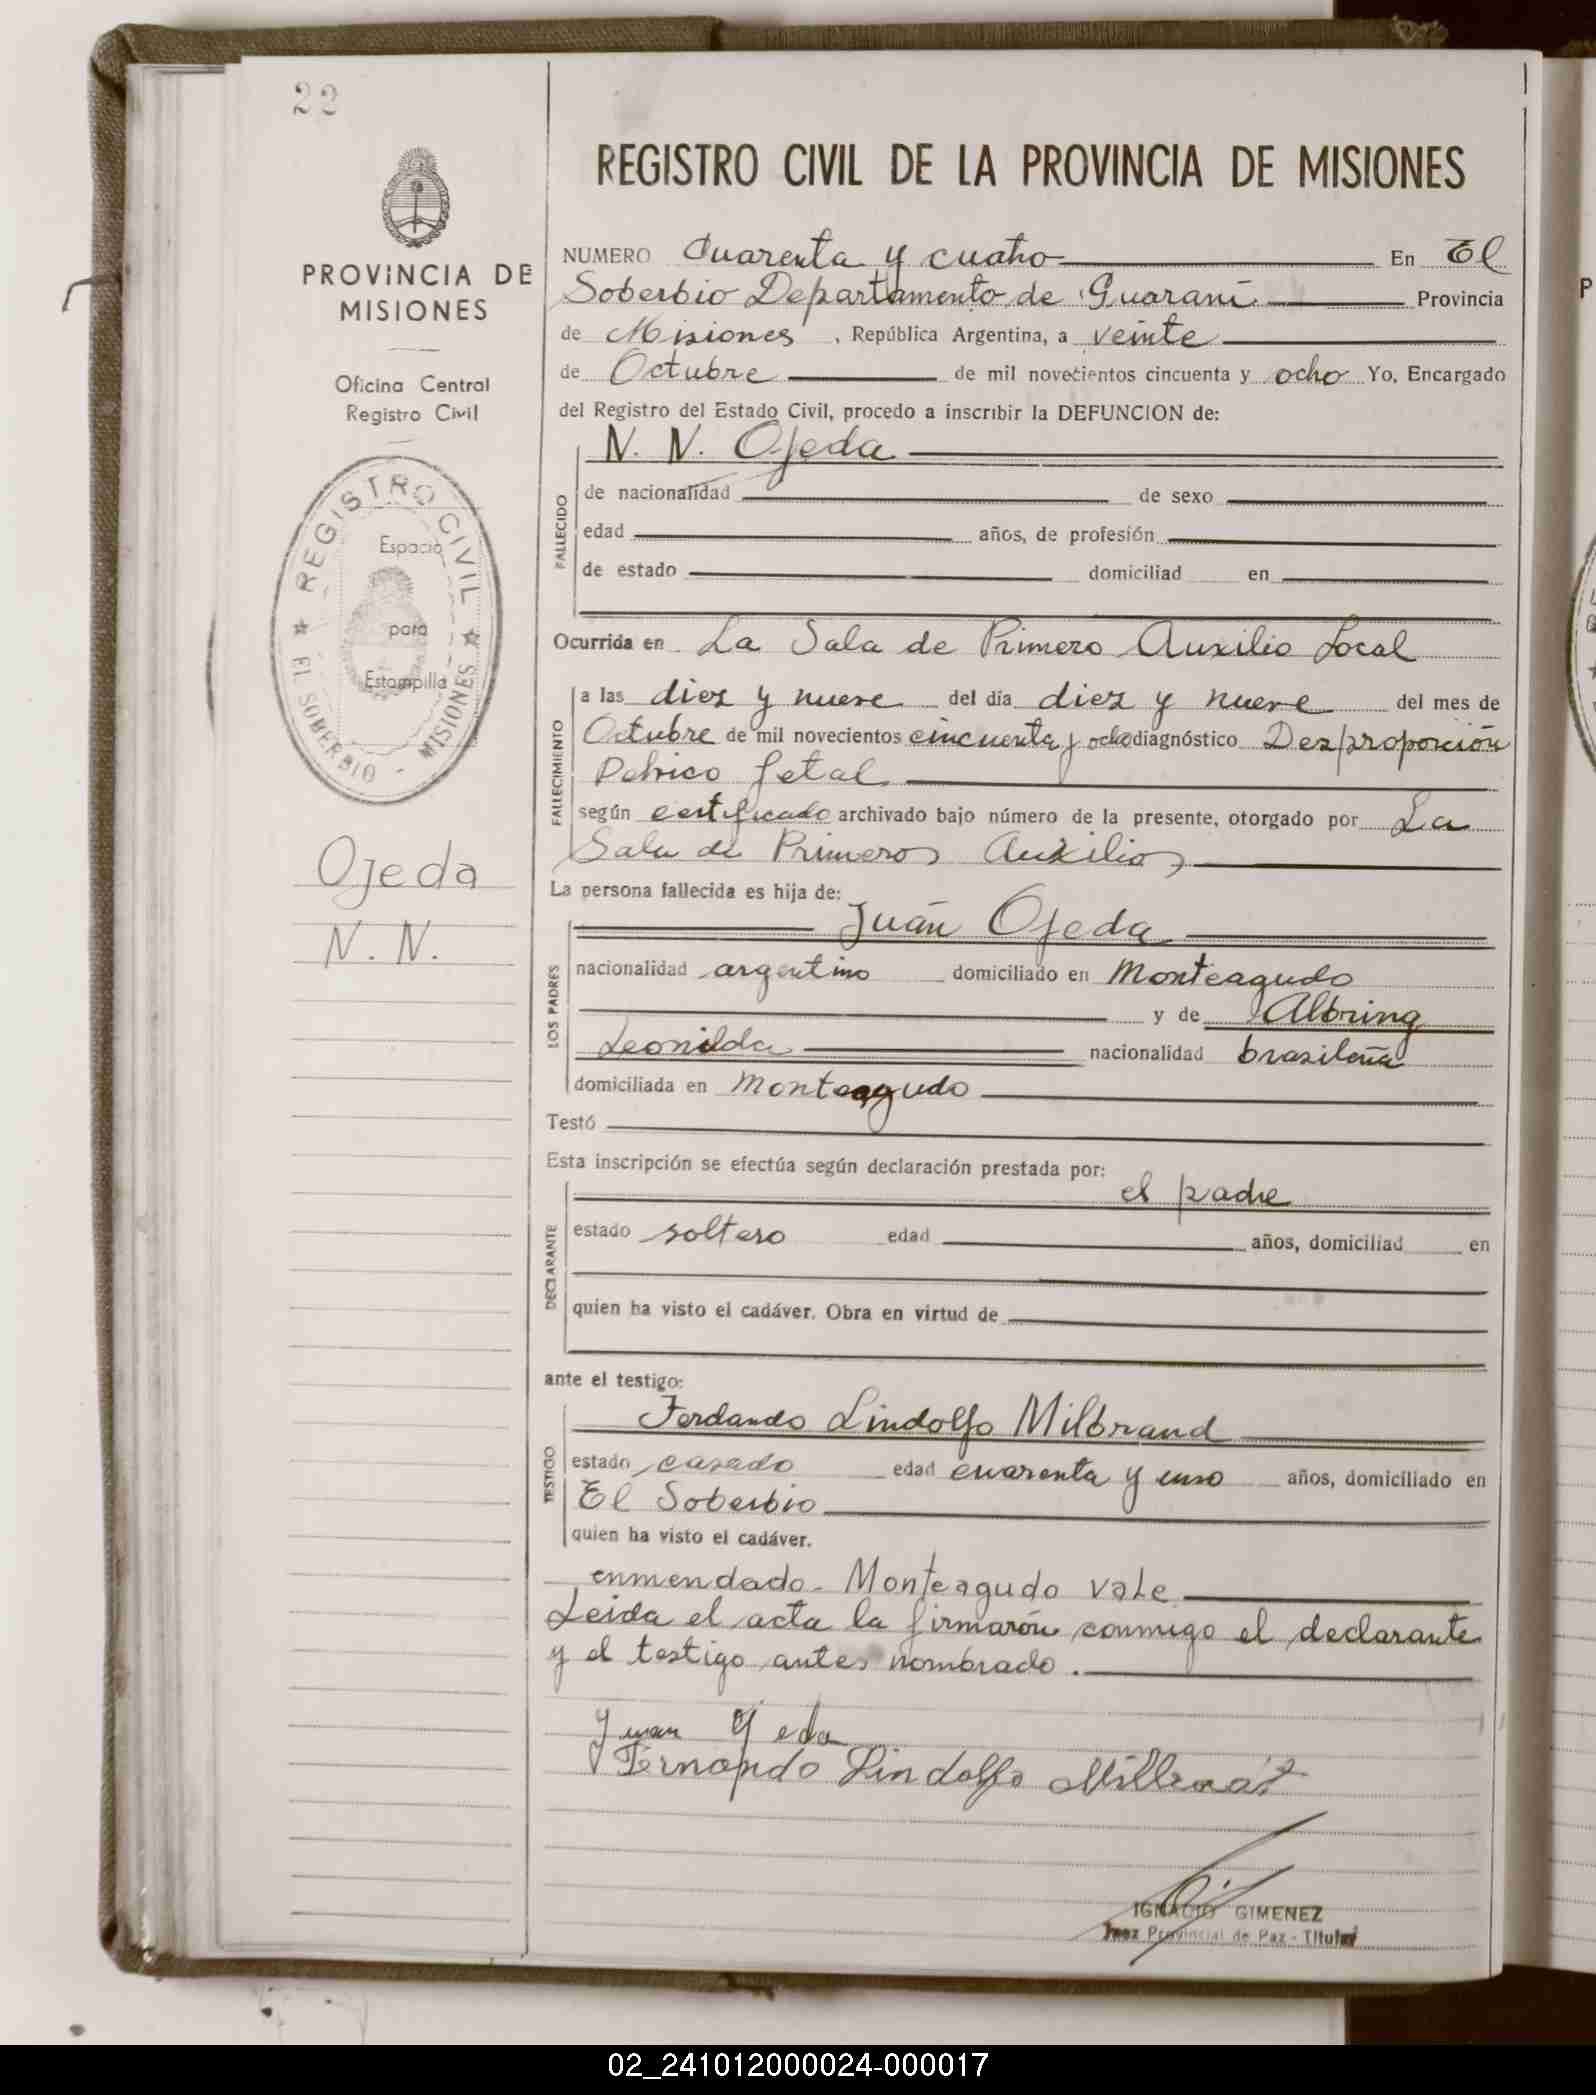 22
PROVINCIA DE
MISIONES
Oficina Central
Registro Civil
REGISTRO CIVIL
Espacio
para
Estampilla
EL SOBERBIO - MISIONES
Ojeda
N. N.
REGISTRO CIVIL DE LA PROVINCIA DE MISIONES
NUMERO Cuarenta y cuatro En El
Soberbio Departamento de Guaraní Provincia
de Misiones, República Argentina, a veinte
de Octubre de mil novecientos cincuenta y ocho Yo, Encargado
del Registro del Estado Civil, procedo a inscribir la DEFUNCION de:
N. N. Ojeda
FALLECIDO
de nacionalidad de sexo
edad años, de profesión
de estado domiciliad en
Ocurrida en La Sala de Primero Auxilio Local
FALLECIMIENTO
a las diez y nueve del día diez y nueve del mes de
Octubre de mil novecientos cincuenta y ocho diagnóstico Dezproporción
Pelvico fetal
según certificado archivado bajo número de la presente, otorgado por La
Sala de Primeros Auxilios
La persona fallecida es hija de:
Juán Ojeda
LOS PADRES
nacionalidad argentino domiciliado en Monteagudo
y de Albring
Leonilda nacionalidad brasileña
domiciliada en Monteagudo
Testó
Esta inscripción se efectúa según declaración prestada por:
el padre
DECLARANTE
estado soltero edad años, domiciliad en
quien ha visto el cadáver. Obra en virtud de
ante el testigo:
Ferdando Lindolfo Milbrand
TESTIGO
estado casado edad cuarenta y uno años, domiciliado en
El Soberbio
quien ha visto el cadáver.
enmendado - Monteagudo vale
Leida el acta la firmarón conmigo el declarante
y el testigo antes nombrado.
Juan Ojeda
Fernando Lindolfo
IGNACIO GIMENEZ
Juez Provincial de Paz - Titular
P
02_241012000024-000017